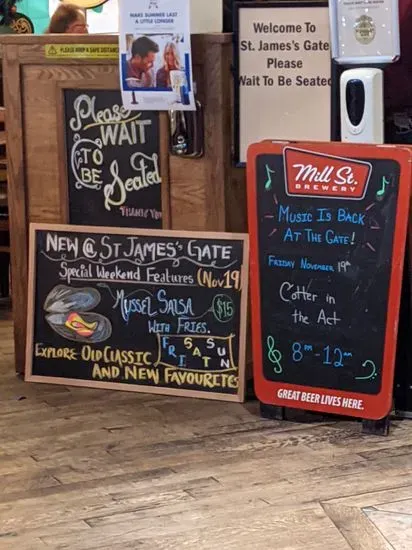 PLEASE KEEP A SAFE DISTANCE
MAKE SUMMER LAST
A LITTLE LONGER
Welcome To
St. James's Gate
Please
Wait To Be Seated
Please
WAIT
TO
BE
Seated
THANK YOU
NEW @ ST JAMES'S GATE
Special Weekend Features (Nov 19)
MUSSEL SALSA
WITH FRIES.
$15
FRI SAT SUN
EXPLORE OLD CLASSIC
AND NEW FAVOURITES
Mill St.
BREWERY
MUSIC IS BACK
AT THE GATE!
FRIDAY NOVEMBER 19th
Cotter in
the Act
8pm-12am
GREAT BEER LIVES HERE.